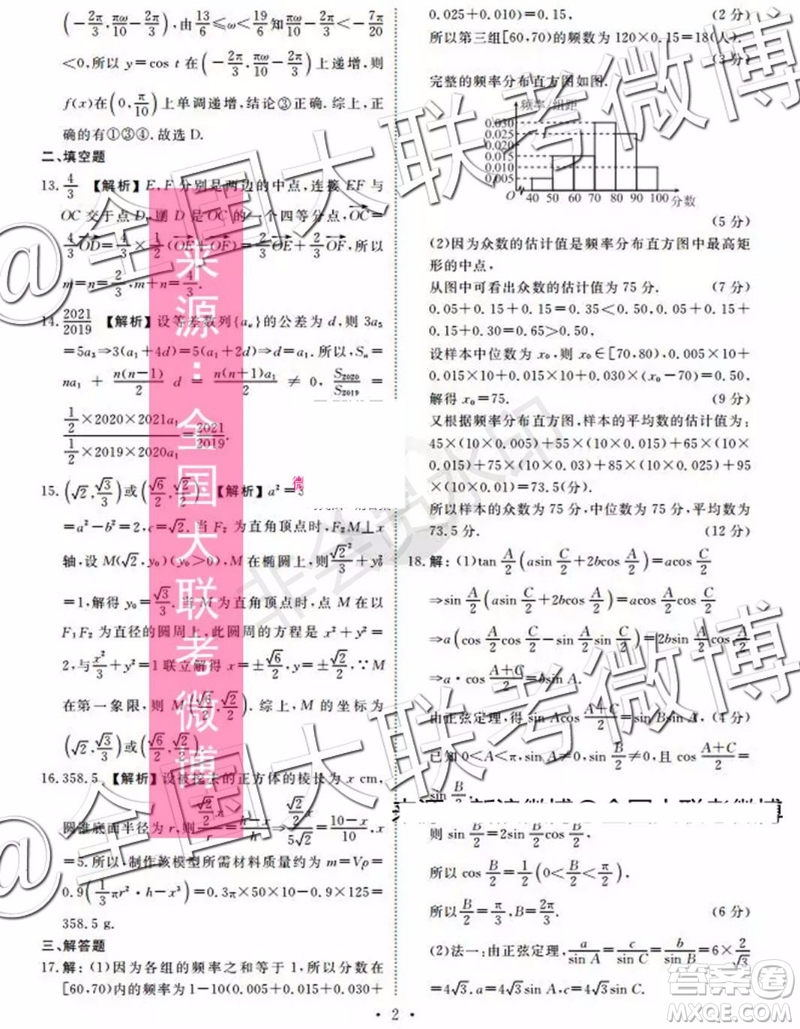 (-2π/3, πω/10 - 2π/3), 由 13/6 ≤ω< 19/6 知 πω/10 - 2π/3 < -7π/20
<0,所以 y=cos t 在(-2π/3, πω/10 - 2π/3)上递增,则
f(x)在(0, π/10)上单调递增,结论③正确. 综上,正
确的有①③④. 故选 D.
二、填空题
13. 4/3 【解析】E,F 分别是两边的中点,连接 EF 与
OC 交于点 D,则 D 是 OC 的一个四等分点,
OE+2/3 OF,所以
m=n=2/3,m+n=4/3.
14. 2021/2019 【解析】设等差数列{aₙ}的公差为 d,则 3a₅
=5a₃⇒3(a₁+4d)=5(a₁+2d)⇒d=a₁. 所以,Sₙ=
na₁+ n(n-1)/2 d= n(n+1)a₁/2 ≠0, S₂₀₂₀/S₂₀₁₉
(1/2×2020×2021a₁)/(1/2×2019×2020a₁) = 2021/2019.
15. (√2, √3/3)或(√6/2, √2/2) 【解析】a²=3
=a²-b²=2,c=√2. 当 F₂ 为直角顶点时,F₂M⊥x
轴,设 M(√2,y₀)(y₀>0),在椭圆上,则 √2²/3+y₀²
=1,解得 y₀=√3/3. 当 M 为直角顶点时,点 M 在以
F₁F₂ 为直径的圆周上,此圆周的方程为 x²+y²=
2,与 x²/3+y²=1 联立解得 x=±√6/2,y=±√2/2,∵M
在第一象限,则 M(√6/2, √2/2). 综上,M 的坐标为
(√2, √3/3)或(√6/2, √2/2).
16. 358.5 【解析】设被挖去的正方体的棱长为 x cm,
圆锥底面半径为 r,则 (√2/2 x)/r = (h-x)/h ⇒ (√2/2 x)/(5√2) = (10-x)/10 ⇒
x=5. 所以,制作该模型所需材料质量约为 m=Vρ=
0.9(1/3 πr²·h-x³)=0.3π×50×10-0.9×125=
358.5 g.
三、解答题
17. 解:(1)因为各组的频率之和等于 1,所以分数在
[60,70)内的频率为 1-10(0.005+0.015+0.030+
0.025+0.010)=0.15, (2 分)
所以第三组[60,70)的频数为 120×0.15=18(人).
(3 分)
完整的频率分布直方图如图.
频率/组距
0.030
0.025
0.020
0.015
0.010
0.005
O 40 50 60 70 80 90 100 分数
(5 分)
(2)因为众数的估计值是频率分布直方图中最高矩
形的中点,
从图中可看出众数的估计值为 75 分. (7 分)
0.05+0.15+0.15=0.35<0.50,0.05+0.15+0.15+
0.3=0.65>0.50,
设样本中位数为 x₀,则 x₀∈[70,80),0.005×10+
0.015×10+0.015×10+0.030×(x₀-70)=0.50,
解得 x₀=75. (9 分)
又根据频率分布直方图,样本的平均数的估计值为:
45×(10×0.005)+55×(10×0.015)+65×(10×
0.015)+75×(10×0.03)+85×(10×0.025)+95×
(10×0.01)=73.5(分)
所以样本的众数为 75 分,中位数为 75 分,平均数为
73.5 分. (12 分)
18. 解:(1)tan A/2 (asin C/2+2bcos A/2)=acos C/2
⇒sin A/2 (asin C/2+2bcos A/2)=acos C/2 cos A/2
⇒a(cos C/2 cos A/2-sin A/2 sin C/2)=2bsin A/2 cos A/2
⇒a·cos (A+C)/2=bsin A
由正弦定理,得 sin Acos (A+C)/2=sin Bsin A. (4 分)
已知 0<A<π,所以 sin A≠0,cos (A+C)/2
=sin B/2.
则 sin B/2=2sin B/2 cos B/2.
所以 cos B/2=1/2(0<B/2<π/2).
所以 B/2=π/3,B=2π/3. (6 分)
(2)法一:由正弦定理, a/sin A=c/sin C=b/sin B=6×2/√3
=4√3. a=4√3 sin A,c=4√3 sin C.
2
@全国大联考微博
@全国大联考微博
@全国大联考微博
来源:全国大联考微博
来源:新浪微博@全国大联考微博
非会员水印
答案圈